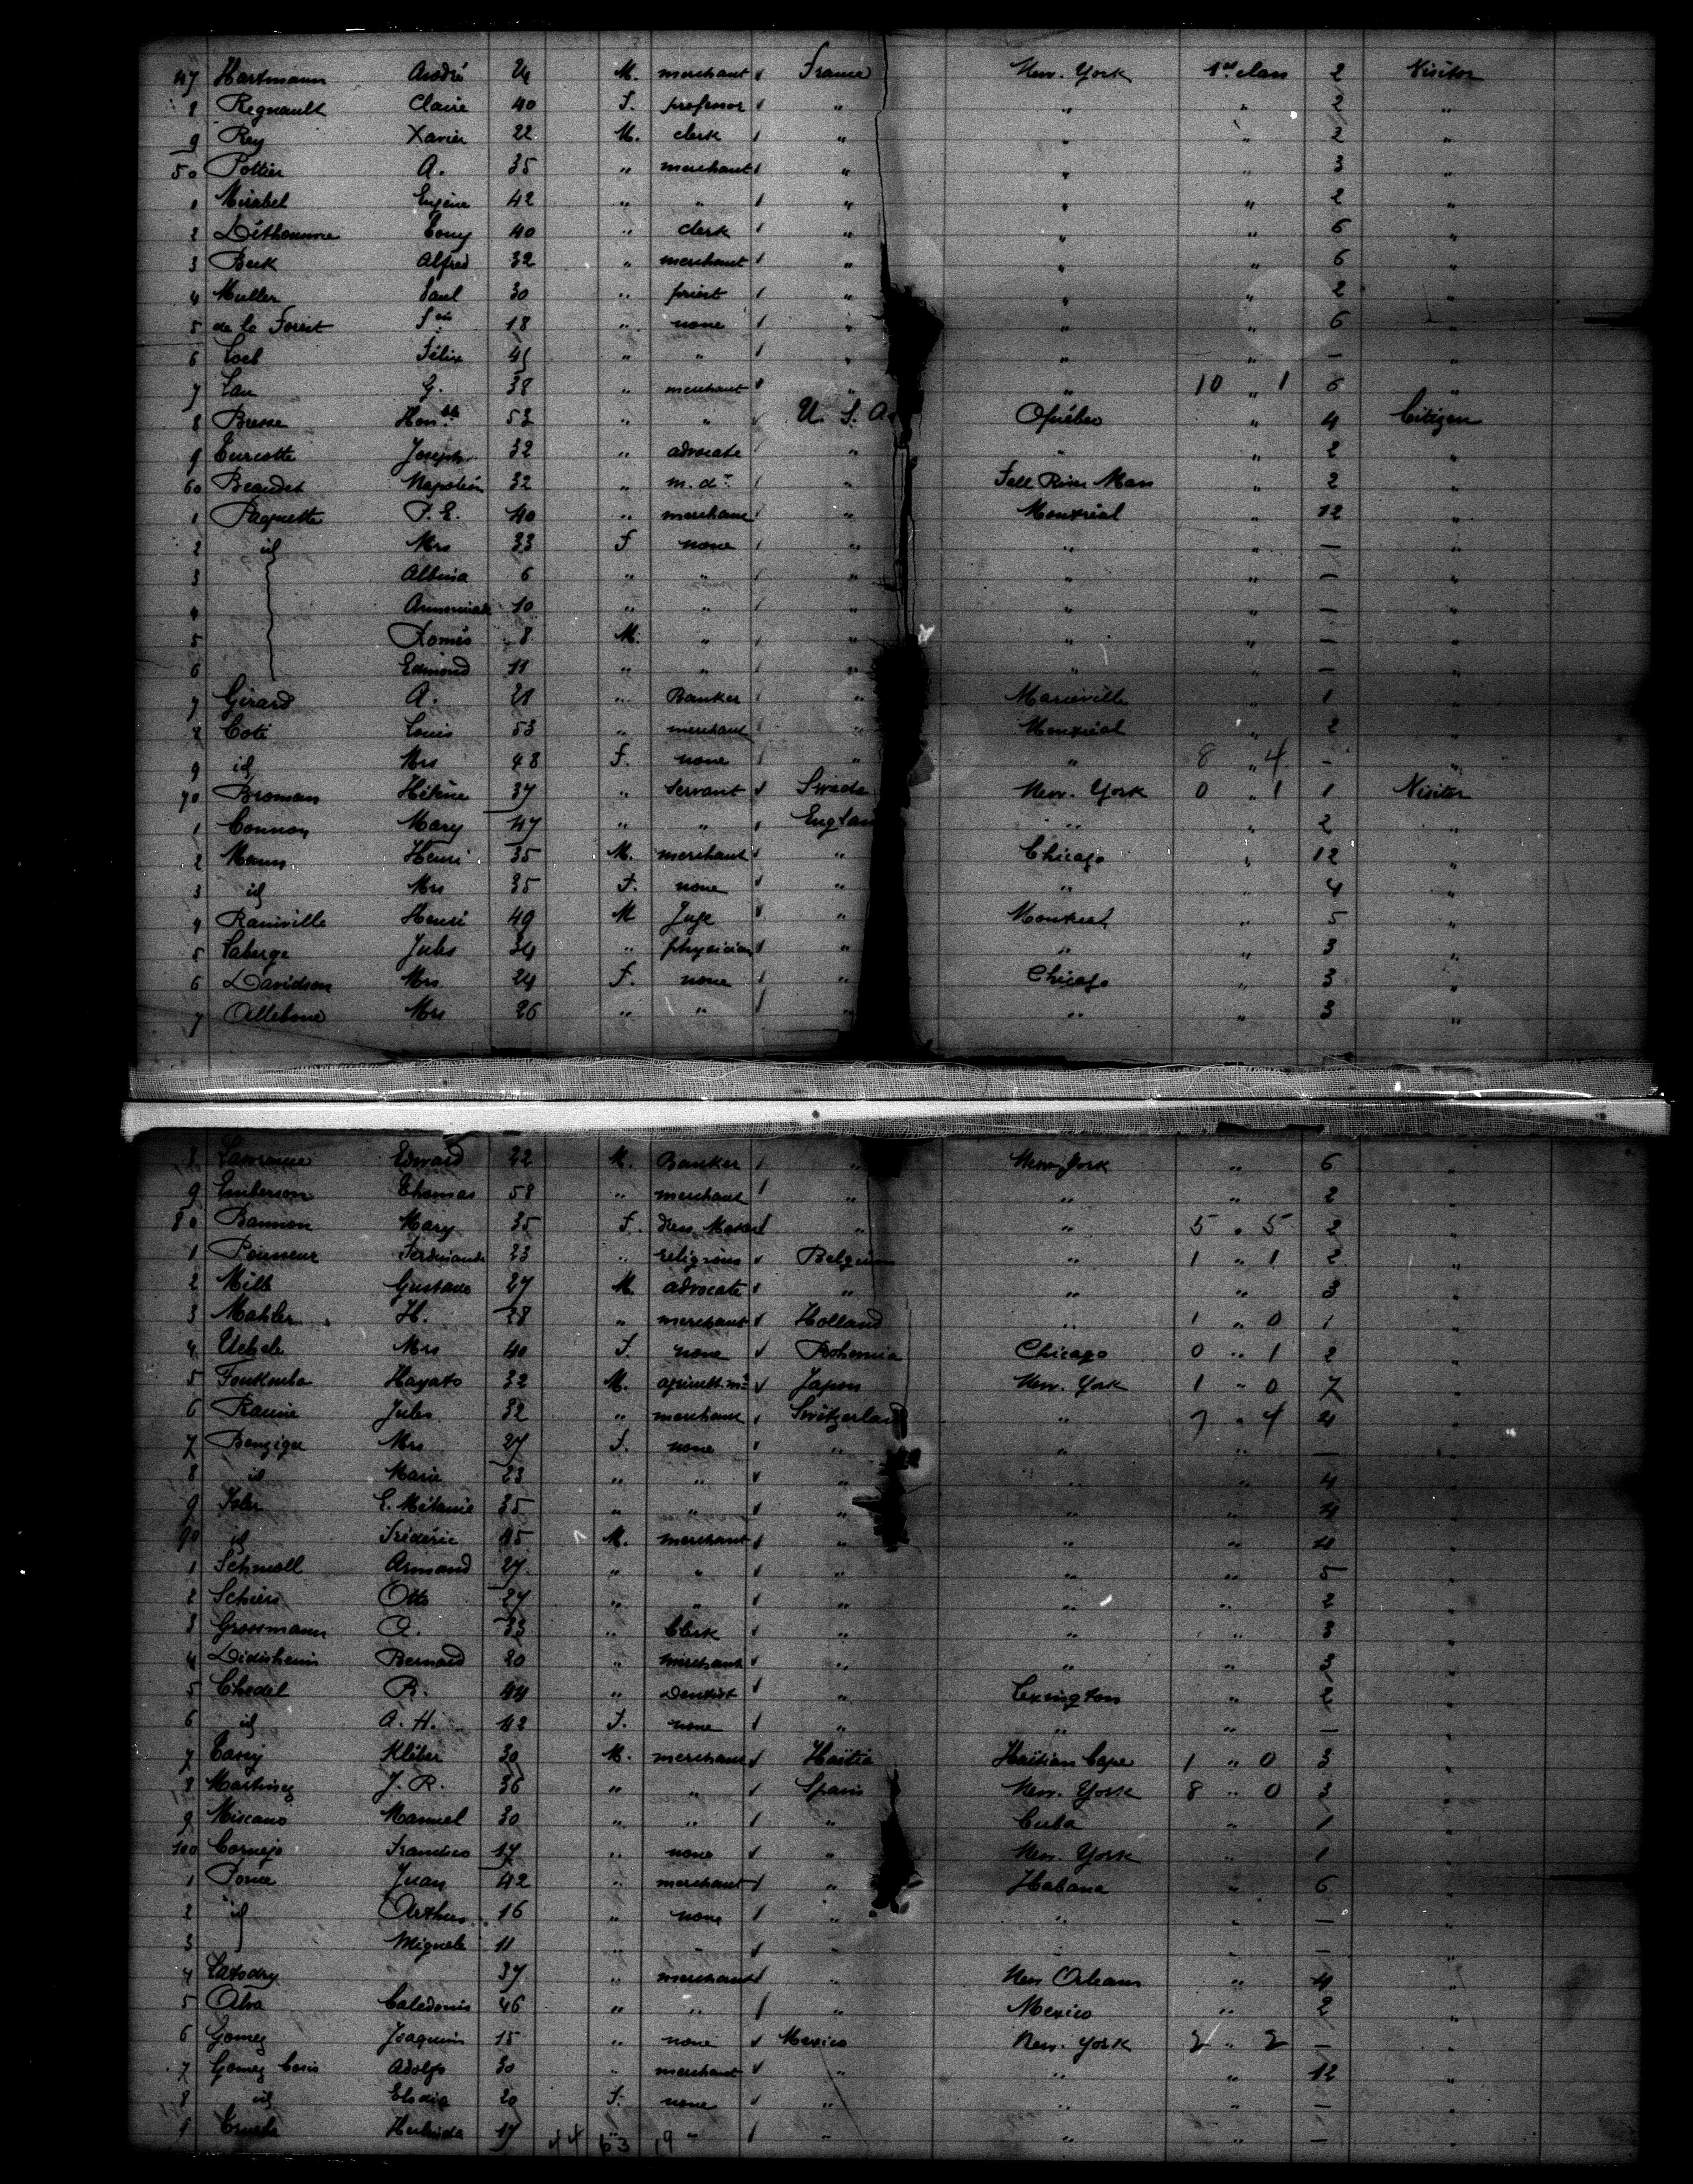 47 Hartmann André 24 M. merchant √ France New. York 1st class 2 Visitor
8 Regnault Claire 40 F. professor √ " " " 2 "
9 Rey Xavier 22 M. clerk √ " " " 2 "
50 Pottier A. 35 " merchant √ " " " 3 "
1 Mirabel Eugène 42 " " √ " " " 2 "
2 Tony 40 " clerk √ " " " 6 "
3 Beck Alfred 32 " merchant √ " " " 6 "
4 Muller Paul 30 " priest √ " " " 2 "
5 de la Forest 18 " none √ " " " 6 "
6 Loeb Félix " " √ " " " — "
7 Lau G. 38 " merchant √ " " 10 " 1 6 "
8 Bresse Honble 53 " " √ U. S. A. Québec " 4 Citizen
9 Turcotte Joseph 32 " advocate √ " " " 2 "
60 Beaudet Napoléon 32 " m. dr. √ " Fall River Mass " 2 "
1 Paquette P. E. 40 " merchant √ " Montréal " 12 "
2 id Mrs 33 F none √ " " " — "
3 Albina 6 " " √ " " " — "
4 10 " " √ " " " — "
5 Roméo 8 M. " √ " " " — "
6 Edmond 11 " " √ " " " — "
7 Girard A. 21 " Banker √ " Marieville " 1 "
8 Coté Louis 53 " merchant √ " Montréal " 2 "
9 id Mrs 48 F. none √ " " 8 " 4 — "
70 Broman Hélène 37 " servant √ Swede New. York 0 " 1 1 Visitor
1 Connoy Mary 47 " " √ England " " 2 "
2 Mann Henri 35 M. merchant √ " Chicago " 12 "
3 id Mrs 35 F. none √ " " " 4 "
4 Rainville Henri 49 M Juge √ " Montreal " 5 "
5 Laberge Jules 34 " physician √ " " " 3 "
6 Davidson Mrs 24 F. none √ " Chicago " 3 "
7 Allebone Mrs 26 " " √ " " " 3 "
8 Lawrance Edward 22 M. Banker √ " New York " 6 "
9 Emberson Thomas 58 " merchant √ " " " 2 "
80 Bannon Mary 35 F. dress Maker √ " " 5 " 5 2 "
1 Ferdinande 23 " religious √ Belgium " 1 " 1 2 "
2 Mille Gustave 27 M. advocate √ " " " 3 "
3 Mahler H. 28 " merchant √ Holland " 1 " 0 1 "
4 Mrs 40 F. none √ Bohemia Chicago 0 " 1 2 "
5 Hayato 32 M. √ Japon New. York 1 " 0 7 "
6 Racine Jules 32 " merchant √ Switzerland " 7 " 4 4 "
7 Benziger Mrs 27 F. none √ " " " — "
8 id Marie 23 " " √ " " " 4 "
9 Isler E. Mélanie 35 " " √ " " " 4 "
90 id Fréderic 45 M. merchant √ " " " 4 "
1 Schmoll Armand 27 " " √ " " " 5 "
2 Schiers Otto 27 " " √ " " " 2 "
3 Grossmann A. 33 " Clerk √ " " " 3 "
4 Didisheim Bernard 20 " merchant √ " " " 3 "
5 Chedel R. 44 " Dentist √ " Lexington " 2 "
6 id A. H. 42 F. none √ " " " — "
7 Kléber 30 M. merchant √ Haïtia Haïtian Cape 1 " 0 3 "
8 Martinez J. R. 36 " " √ Spain New. York 8 " 0 3 "
9 Miscano Manuel 30 " " √ " Cuba " 1 "
100 Cornejo Francisco 17 " none √ " New. York " 1 "
1 Ponce Juan 42 " merchant √ " Habana " 6 "
2 id Arthur 16 " none √ " " " — "
3 Miguele 11 " " √ " " " — "
4 37 " merchant √ " New Orleans " 4 "
5 Alva Caledonio 46 " " √ " Mexico " 2 "
6 Gomez Joaquim 15 " none √ Mexico New. York 2 " 2 — "
7 Gomez Adolfo 30 " merchant √ " " " 12 "
8 id Elodia 20 F. none √ " " " — "
9 17 " " √ " " " — "
44 63 19